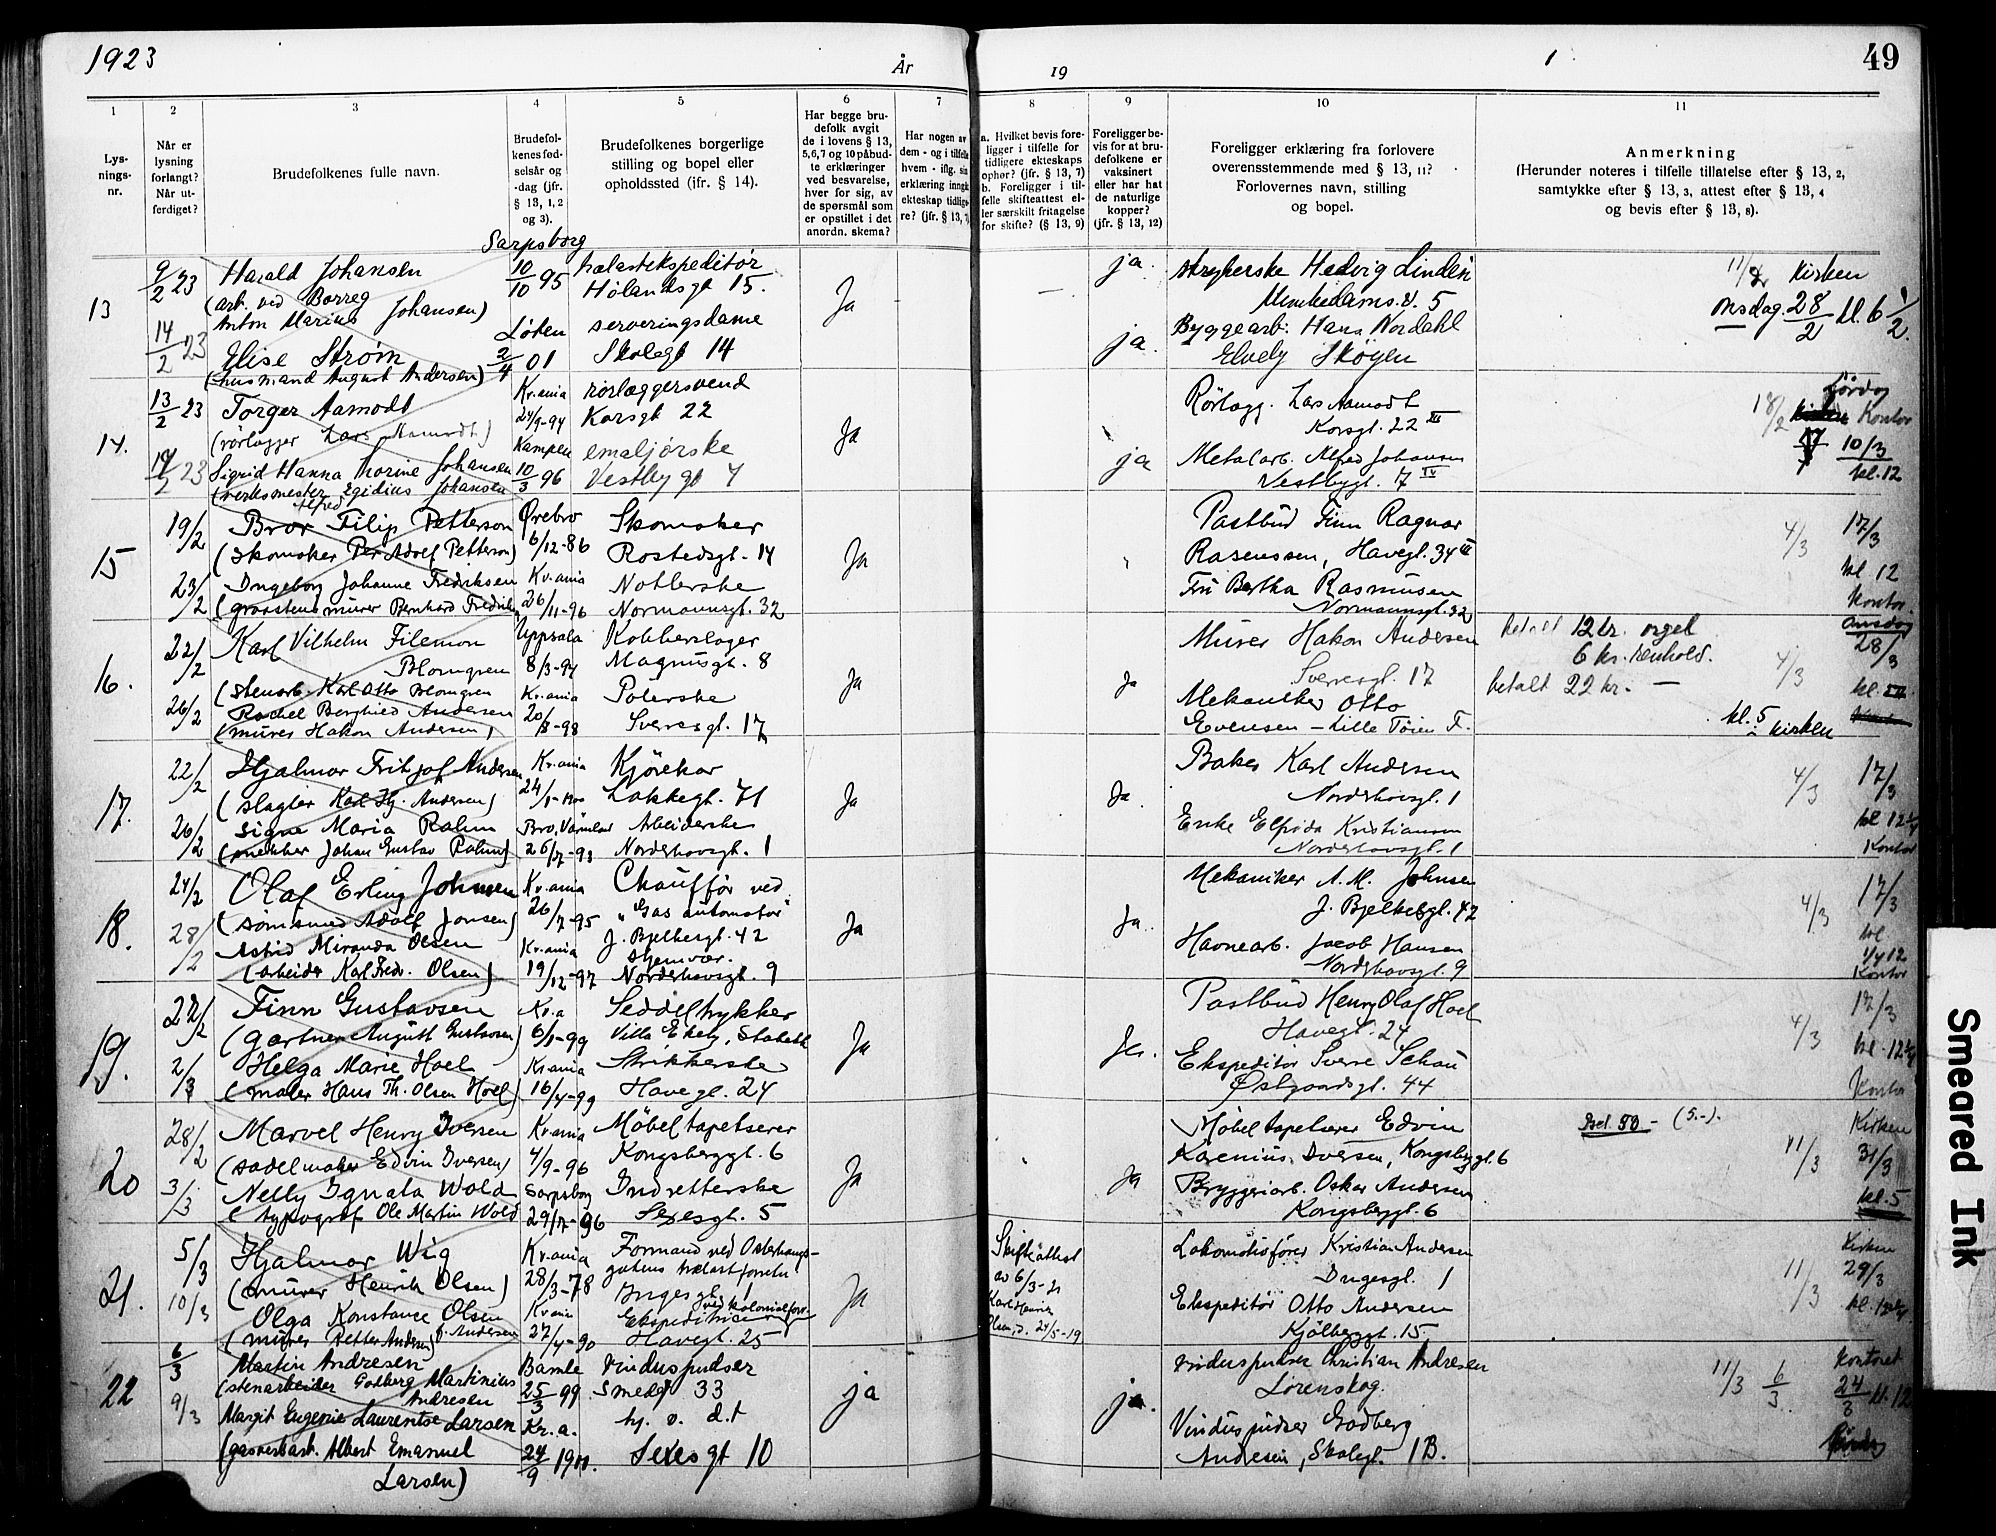 1923
År
19
49
1
2
3
4
5
6
7
8
9
10
11
Lys-
nings-
nr.
Når er
lysning
forlangt?
Når ut-
ferdiget?
Brudefolkenes fulle navn.
Brudefol-
kenes fød-
selsår og
-dag (jfr.
§ 13, 1, 2
og 3).
Brudefolkenes borgerlige
stilling og bopel eller
opholdssted (jfr. § 14).
Har begge bru-
defolk avgit
de i lovens § 13,
5, 6, 7 og 10 påbud-
te erklæringer
ved besvarelse,
hver for sig, av
de spørsmål som
er opstillet i det
anordn. skema?
Har nogen av
dem - og i tilfelle
hvem - iflg. sin
erklæring inngå
ekteskap tidlige-
re? (jfr. § 13,
a. Hvilket bevis fore-
ligger i tilfelle for
tidligere ekteskaps
ophør? (jfr. § 13, 7)
b. Foreligger i til-
felle skifteattest el-
ler særskilt fritagelse
for skifte? (§ 13, 9)
Foreligger be-
vis for at bru-
defolkene er
vaksinert
eller har hat
de naturlige
kopper?
(jfr. § 13, 12)
Foreligger erklæring fra forlovere
overensstemmende med § 13, 11?
Forlovernes navn, stilling
og bopel.
Anmerkning
(Herunder noteres i tilfelle tillatelse efter § 13, 2,
samtykke efter § 13, 3, attest efter § 13, 4
og bevis efter § 13, 8).
13
9/2 23
14/2 23
Harald Johansen
(arb. ved Borreg
Anton Marius Johansen)
Elise Strøm
(husmand August Andersen)
Sarpsborg
10/10 95
Løten
2/4 01
Hølandsgt 15.
serveringsdame
Skolegt 14
Ja
ja
ja.
strykerske Hedvig Linden
Munkedamsv. 5
Byggearb. Hans Nordahl
Elvely Skøyen
Kirken
Onsdag 28/2 kl. 6 1/2.
14.
13/2 23
14/2 23
Torger Aamodt
(rørlægger Lars Aamodt)
Sigrid Hanna Thorine Johansen
(verksmester Egidius Johansen
Kr.ania
24/9-94
Kampen
10/3 96
rørlæggersvend
Korsgt 22
emaljørske
Vestbygt 7
Ja
ja
Rørlægg. Lars Aamodt
Korsgt. 22 III
Metalarb. Alfred Johansen
Vestbygt. 7 IV
18/2 Kontor
10/3
kl. 12
15
19/2
23/2
Alfred
Bror Filip Petterson
(Skomaker Per Adolf Petterson)
Ingeborg Johanne Fredriksen
(graastensmurer Bernhard Fredriksen
Ørebro
6/12-86
Kr.ania
26/11-96
Skomaker
Rostedsgt. 14
Notlerske
Normannsgt. 32
Ja
Postbud Finn Ragnar
Rasenssen, Havegt. 34 III
Fru Bertha Rasmusen
Normannsgt. 32
4/3
17/3
kl 12
Kontor.
16.
22/2
26/2
Karl Vilhelm Filemon
Blomgren
(stenarb. Karl Otto Blomgren
Rachel Berghied Andersen
(murer Hakon Andersen)
Uppsala
8/3-94
Kr.ania
20/8-98
Kobberslager
Magnusgt. 8
Polerske
Sverresgt. 17
Ja
Ja
Murer Hakon Andersen
Sverresgt. 17
Mekaniker Otto
Evensen - Lille Tøien F.
betalt 12 kr. orgel
6 kr. renhold.
betalt 22 kr. —
4/3
Onsdag
28/3
kl. 5 Kirken
17.
22/2
26/2
Hjalmar Fritjof Andersen
(slagter Karl Hj. Andersen)
Signe Maria Rahm
(snekker Johan Gustav Rahm)
Kr.ania
24/1-1900
Bro, Värmland
26/7-98
Kjørekar
Lakkegt. 71
Arbeiderske
Nordahlsgt. 1
Ja
Ja.
Baker Karl Andersen
Norderhovsgt. 1
Enke Elfrida Kristiansen
Norderhovsgt. 1
4/3
17/3
kl 12 1/4
Kontor
18.
24/2
28/2
Olaf Erling Johnsen
(sømsmed Adolf Jonsen)
Astrid Miranda Olsen
(arbeider Karl Fredr. Olsen)
Kr.ania
26/7-95
Kr.ania
19/12-97
Chauffør ved
"Gas automator"
J. Bjelkesgt. 42
Hjemvær.
Norderhovsgt. 9
Ja
Ja.
Mekaniker A. M. Johnsen
J. Bjelkesgt. 42
Havnearb. Jacob Hansen
Norderhovsgt. 9
4/3
17/3
kl
1/4 12
Kontor
19.
22/2
2/3
Finn Gustavsen
(gartner August Gustavsen)
Helga Marie Hoel
(maler Hans Th. Olsen Hoel)
Kr.a
6/1-99
Kr.ania
16/4-99
Seddeltrykker
Villa Ekely, Stabekk
Strikkerske
Havegt. 24
Ja
Ja.
Postbud Henry Olaf Hoel
Havegt. 24
Ekspeditør Sverre Schau
Østgaardsgt. 44
4/3
17/3
kl. 12 1/4
Kontor
20
28/2
3/3
Marvel Henry Iversen
(sadelmaker Edvin Iversen)
Nelly Ignata Wold
(typograf Ole Martin Wold
Kr.ania
4/9-96
Sarpsborg
29/7-96
Møbeltapetserer
Kongsberggt. 6
Indretterske
Sexesgt. 5
Ja
Ja
Møbeltapetserer Edvin
Karenius Iversen, Kongsberggt. 6
Bryggeriarb. Oskar Andersen
Kongsberggt. 6
(5.-).
11/3
Kirken
31/3
kl. 5
21.
5/3
10/3
Hjalmar Wig
(murer Henrik Olsen)
Olga Konstance Olsen
(murer Petter Andersen) f. Andersen
Kr.ania
28/3-78
Kr.ania
27/4-90
Formand ved Osterhaugs-
gatens trelastforretn
Ingesgt. 1
Ekspeditrice ved kolonialforr.
Havegt. 25
Ja
Skifteattest
av 6/3-21
Karl Henrik
Olsen, d. 24/5-19
Lokomotivfører Kristian Andersen
Ingesgt. 1
Ekspeditør Otto Andersen
Kjølberggt. 15.
11/3
Kirken
29/3
22
6/3
9/3
Martin Andresen
(stenarbeider Godberg Martinius
Andresen
Margit Eugenie Laurentse Larsen
(gasverksarb. Albert Emanuel
Larsen)
Bamle
25/3 99
Kr.a.
24/9 1900.
vinduspudser
Smedgt 33
hj. v. d.t
Sexesgt 10
ja
ja.
vinduspudser Christian Andresen
Lørenskog.
Vinduspudser Godberg
Andresen, Skolegt. 1B.
11/3 6/3
Kontoret
24/3 kl. 12
Smeared Ink